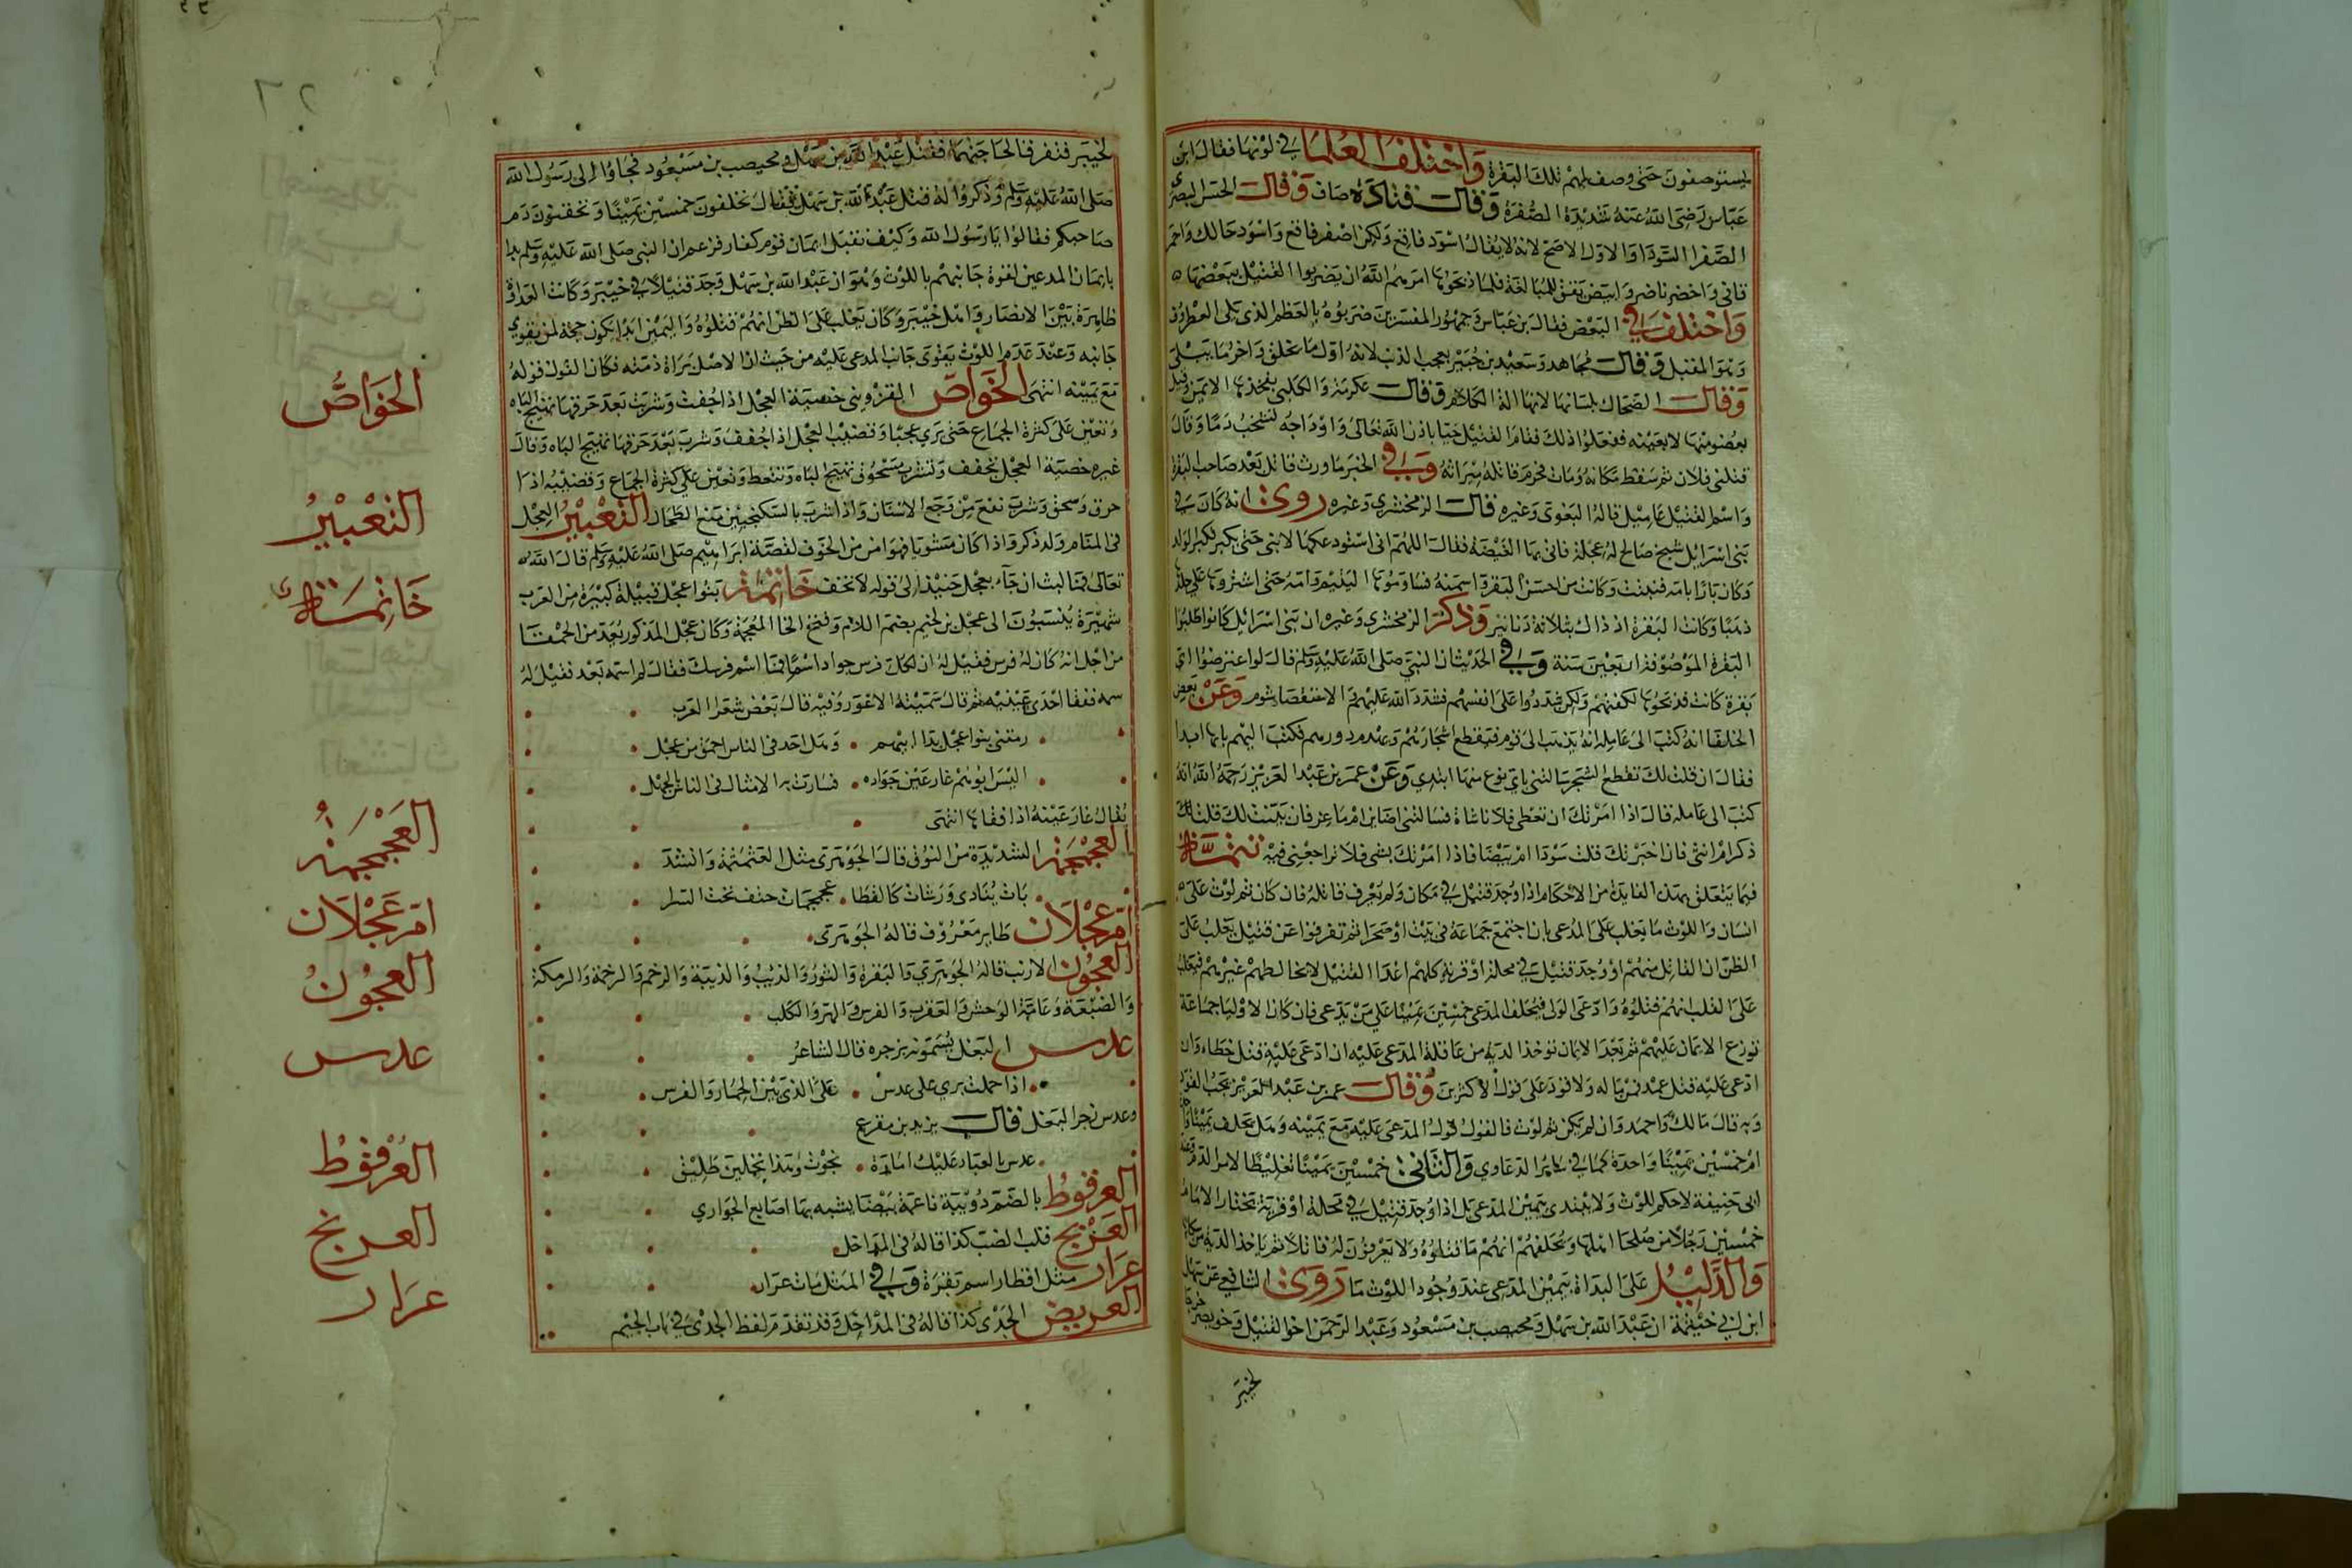 يستوصفون حتى وصف لهم تلك البقرة واختلف العلما في لونها فقال ابن
عباس رضى الله عنه شديدة الصفرة وقال قتادة صاف وقال الحسن البصرى
الصفرا السودا والاول الاصح لانه لا يقال اسود فاقع ولكن اصفر فاقع واسود حالك واحمر
قانى واخضر ناضر وابيض يقق للمبالغة فلما ذبحوها امرهم الله ان يضربوا القتيل ببعضها
واختلف في البعض فقال بن عباس وجمهور المفسرين ضربوه بالعظم الذى يلى الغضروف
وهو المقتل وقال مجاهد وسعيد بن جبير بعجب الذنب لانه اول ما يخلق واخر ما يبلى
وقال الضحاك بلسانها لانها الة الكلام وقال عكرمة والكلبى بفخذها الايمن وقيل
بعضو منها لا بعينه ففعلوا ذلك فقام القتيل حيا باذن الله تعالى واوداجه تشخب دما وقال
قتلنى فلان ثم سقط مكانه ومات فحرم قاتله ميراثه وفي الخبر ما ورث قاتل بعد صاحب البقرة
واسم القتيل عاميل قاله البغوى وغيره قال الزمخشرى وغيره روى انه كان في
بنى اسرائيل شيخ صالح له عجلة فاتى بها الغيضة فقال اللهم انى استودعكها لابنى حتى يكبر فكبر الولد
وكان بارا بامه فشبت وكانت من احسن البقرة اسمنه فساوموها اليتيم وامه حتى اشتروها على جلدها
ذهبا وكانت البقرة اذ ذاك بثلاثة دنانير وذكر الزمخشرى وغيره ان بنى اسرائيل كانوا طلبوا
البقرة الموصوفة اربعين سنة وفي الحديث ان النبى صلى الله عليه وسلم قال لو اعترضوا اى
بقرة كانت فذبحوها لكفتهم ولكن شددوا على انفسهم فشدد الله عليهم والاستقصا شوم وعن بعض
الخلفا انه كتب الى عامله انه يذهب الى قوم فيقطع اشجارهم ويهدم دورهم فكتب اليهم بايها ابدا
فقال ان قلت لك تقطع الشجر سالتنى باى نوع منها ابتدى وعن عمر بن عبد العزيز رحمه الله انه
كتب الى عامله قال اذا امرتك ان تعطى فلانا شاة فسالتنى اضاين ام ماعز فان بينت لك قلت لك
ذكر ام انثى فان اخبرتك قلت سودا ام بيضا فاذا امرتك بشى فلا تراجعنى فيه تتمة
فيما يتعلق بهذه الفايدة من الاحكام اذا وجد قتيل في مكان ولم يعرف قاتله فان كان ثم لوث على
انسان واللوث ما يغلب على المدعى بان اجتمع جماعة فى بيت او صحرا ثم تفرقوا عن قتيل يغلب على
الظن ان القاتل منهم او وجد قتيل في محلة او قرية كلهم اعدا القتيل لا يخالطهم غيرهم فيغلب
على القلب انهم قتلوه وادعى الولى فيحلف المدعى خمسين يمينا على من يدعى فان كان الاوليا جماعة
توزع الايمان عليهم ثم بعد الايمان توخذ الدية من عاقلة المدعى عليه ان ادعى عليه قتل خطا وان
ادعى عليه قتل عمد فمن ماله ولا قود على قول الاكثرين وقال عمر بن عبد العزيز يجب القود
وبه قال مالك واحمد وان لم يكن ثم لوث فالقول قول المدعى عليه مع يمينه وهل يحلف يمينا واحدة
ام خمسين يمينا واحدة كما في سائر الدعاوي والثانى خمسين يمينا تغليظا لامر الدم وعند
ابى حنيفة لا حكم للوث ولا يبتدى بيمين المدعى بل اذا وجد قتيل في محلة او قرية تختار الامام
خمسين رجلا من صلحا اهلها ويحلفهم انهم ما قتلوه ولا يعرفون له قاتلا ثم ياخذ الدية من سكانها
والدليل على البداة بيمين المدعى عند وجود اللوث ما روى الشافعي عن سهل
ابن ابي خيثمة ان عبد الله بن سهل ومحيصب بن مسعود وعبد الرحمن اخو القتيل وحويصر خرجا
لخيبر
لخيبر فتفرقا لحاجتهما فقتل عبد الله بن سهل ومحيصب بن مسعود فجاوا الى رسول الله
صلى الله عليه وسلم وذكروا له قتل عبد الله بن سهل فقال تحلفون خمسين يمينا وتحقنون دم
صاحبكم فقالوا يا رسول الله وكيف نقبل ايمان قوم كفار فزعم ان النبى صلى الله عليه وسلم بدا
بايمان المدعين لقوة جانبهم باللوث وهو ان عبد الله بن سهل وجد قتيلا في خيبر وكانت العداوة
ظاهرة بين الانصار واهل خيبر وكان يغلب على الظن انهم قتلوه واليمين ابدا يكون حجة لمن يقوي
جانبه وعند عدم اللوث يقوى جانب المدعى عليه من حيث ان الاصل براة ذمته فكان القول قوله
مع يمينه انتهى الخواص القزويني خصية العجل اذا جففت وشربت بعد حرقها تهيج الباه
وتعين على كثرة الجماع حتى يرى عجبا وقضيب العجل اذا جفف وشرب بعد حرقها تهيج الباه وقال
غيره خصية العجل تجفف وتشرب مسحوقة تهيج الباه وتنعظ وتعين على كثرة الجماع وقضيبه اذا
حرق وسحق وشرب نفع من وجع الاسنان واذا شرب بالسكنجبين منع الطحال التعبير العجل
فى المنام ولد ذكر واذا كان مشويا فهو امن من الخوف لقصة ابراهيم صلى الله عليه وسلم قال الله
تعالى فما لبث ان جآء بعجل حنيذ الى قوله لا تخف خاتمة بنوا عجل قبيلة كبيرة من العرب
شهيرة ينسبون الى عجل بن لجيم بضم اللام وفتح الخا المعجمة وكان عجل المذكور يعد من الحمقا
من اجل انه كان له فرس فقيل له ان لكل فرس جواد اسما فما اسم فرسك فقال لم اسمه بعد فقيل له
سمه ففقا احدى عينيه ثم قال سميته الاعور وفيه قال بعض شعرا العرب
رمتنى بنوا عجل بدا ابيهم • وهل احد فى الناس احمق من عجل
اليس ابوهم غار عين جواده • فسارت به الامثال فى الناس بالجهل
يقال غار عينه اذا فقاها انتهى
العجمجمة الشديدة من النوق قال الجوهرى مثل العثمثمة وانشد
بات يبادى ورشات كالقطا • عجمجمات خشف تحت السرا
ام عجلان طاير معروف قاله الجوهرى
العجون الارنب قاله الجوهري والبقرة والثور والذيب والذيبة والرخم والرخمة والرمكة
والضبعة وعامة الوحش والعقرب والفرس والهر والكلب
عدس البغل يسمونه بزجره قال الشاعر
اذا حملت بزي على عدس • على الذى بين الحمار والفرس
وعدس زجر البغل قال يزيد بن مفرغ
عدس ما لعباد عليك امارة • نجوت وهذا تحملين طليق
العرفوط بالضم دويبة ناعمة بيضا يشبه بها اصابع الجواري
العربج قلب الضب كذا قاله فى المداخل
عرار مثل افطار اسم بقرة وفي المثل باءت عرار
العريض الجدى كذا قاله فى المداخل وقد تقدم لفظ الجدى في باب الجيم
الخواص
التعبير
خاتمة
العجمجمة
ام عجلان
العجون
عدس
العرفوط
العربج
عرار